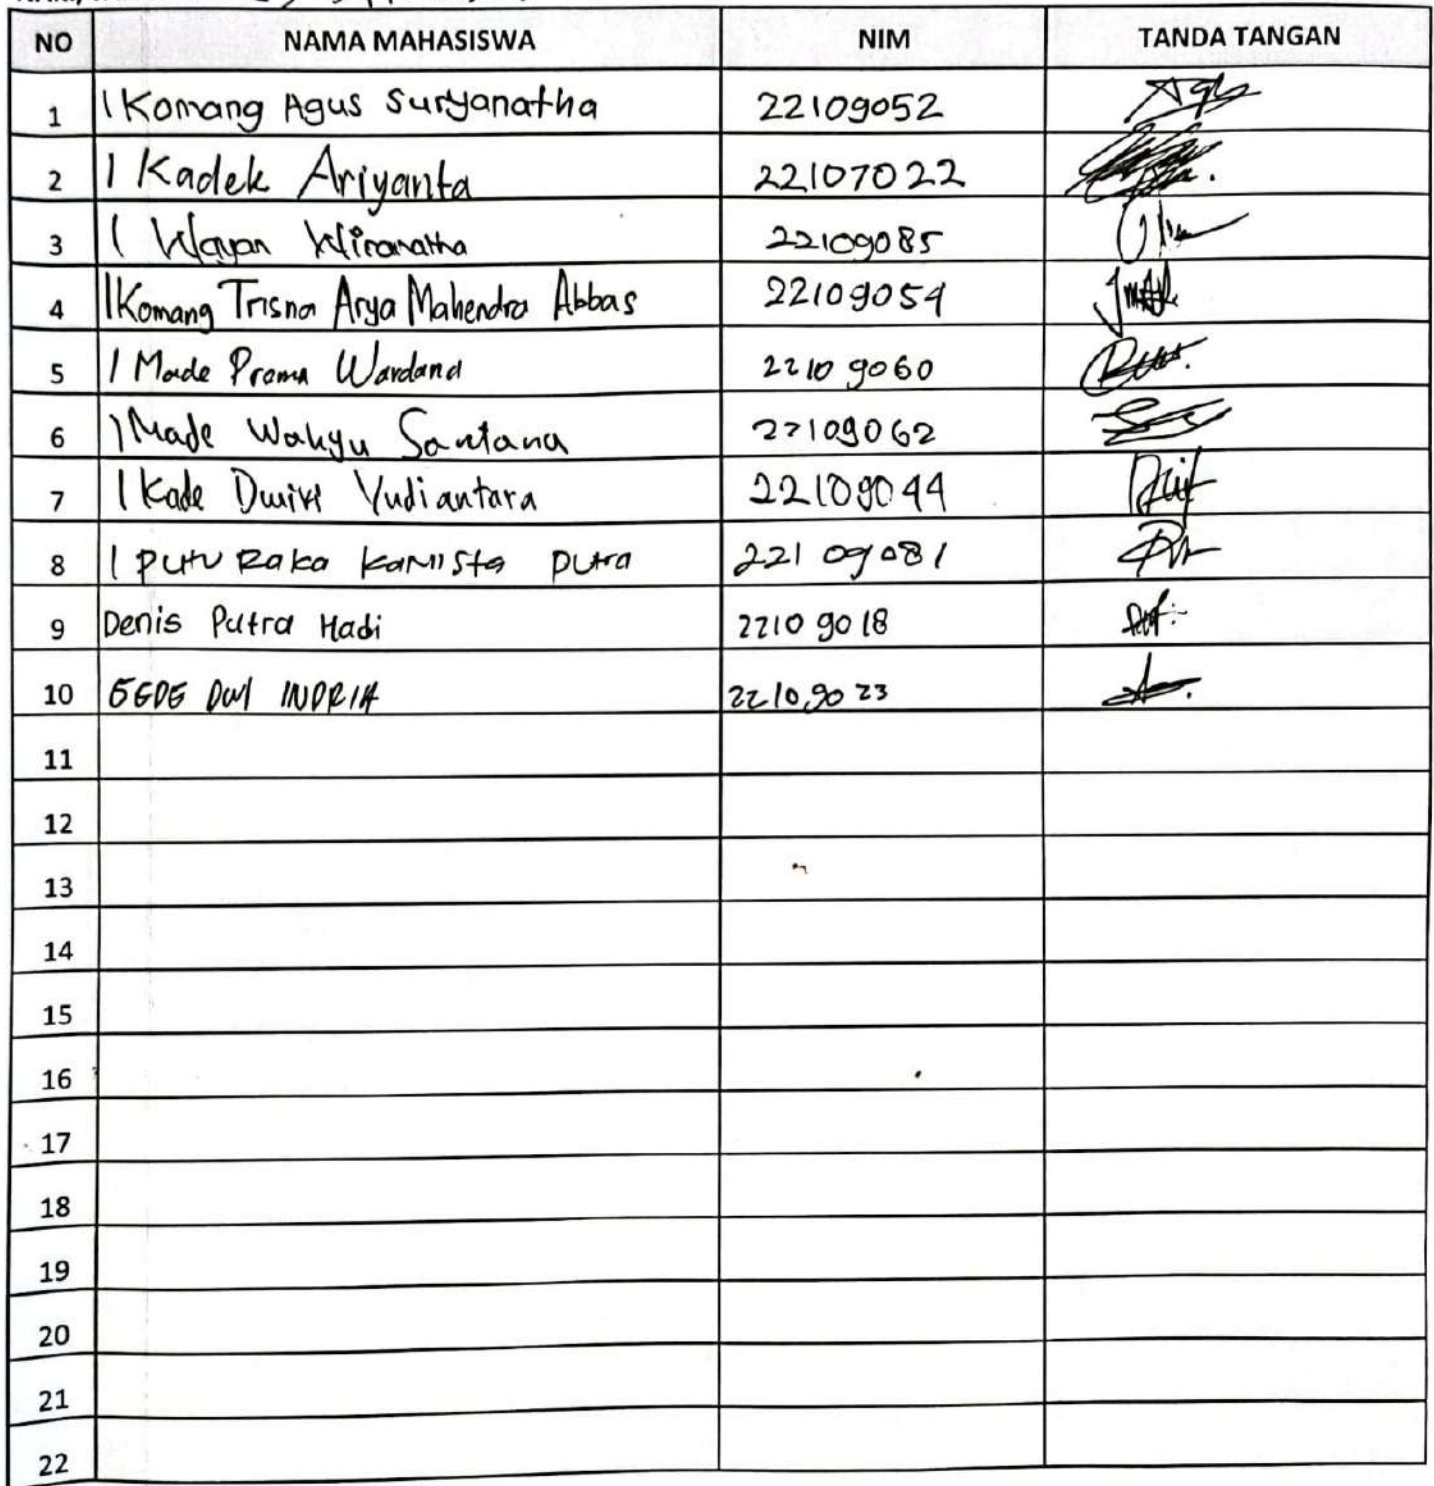 NO NAMA MAHASISWA NIM TANDA TANGAN
1 I Komang Agus Suryanatha 22109052
2 I Kadek Ariyanta 22107022
3 I Wayan Wiranatha 22109085
4 I Komang Trisna Arya Mahendra Abbas 22109054
5 I Made Prama Wardana 2210 9060
6 I Made Wahyu Santana 22109062
7 I Kade Dwiki Yudiantara 22109044
8 I PUTU Raka Kamista putra 221 09081
9 Denis Putra Hadi 2210 9018
10 GEDE DWI INDRIA 2210,90 23
11
12
13
14
15
16
17
18
19
20
21
22